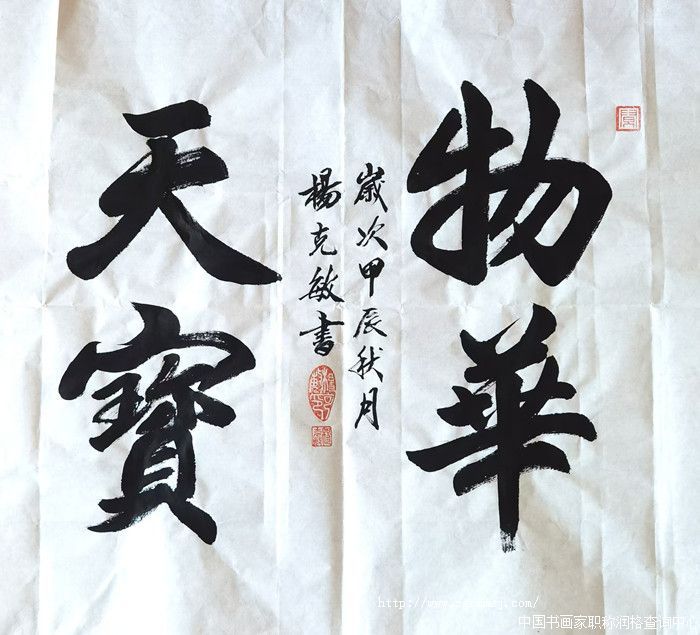 物華
天寶
歲次甲辰秋月
楊克敏書
中国书画家职称润格查询中心